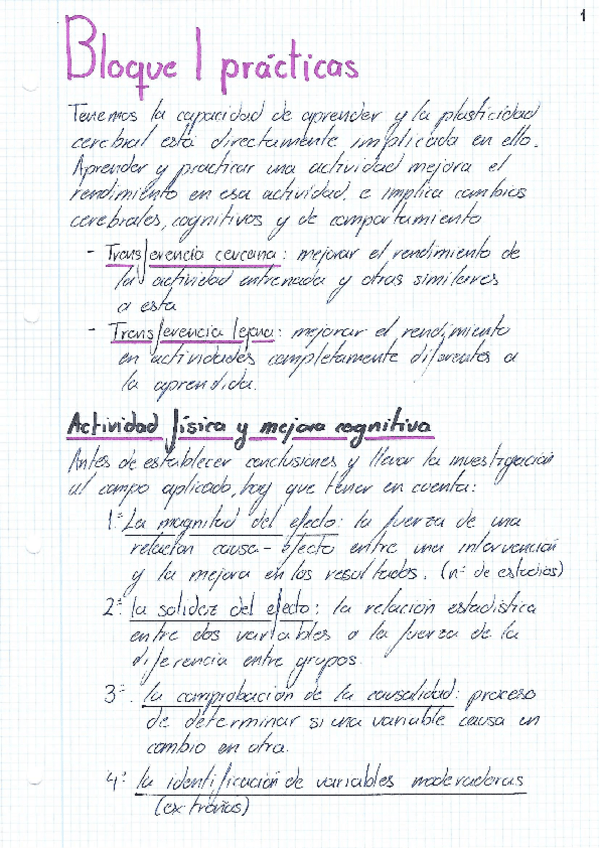 1
Bloque 1 prácticas
Tenemos la capacidad de aprender y la plasticidad
cerebral está directamente implicada en ello.
Aprender y practicar una actividad mejora el
rendimiento en esa actividad, e implica cambios
cerebrales, cognitivos y de comportamiento
- Transferencia cercana: mejorar el rendimiento de
la actividad entrenada y otras similares
a esta
- Transferencia lejana: mejorar el rendimiento
en actividades completamente diferentes a
la aprendida.
Actividad física y mejora cognitiva
Antes de establecer conclusiones y llevar la investigación
al campo aplicado, hay que tener en cuenta:
1º La magnitud del efecto: la fuerza de una
relación causa-efecto entre una intervención
y la mejora en los resultados. (nº de estudios)
2º la solidez del efecto: la relación estadística
entre dos variables o la fuerza de la
diferencia entre grupos.
3º. la comprobación de la causalidad: proceso
de determinar si una variable causa un
cambio en otra.
4º la identificación de variables moderadoras
(extrañas)